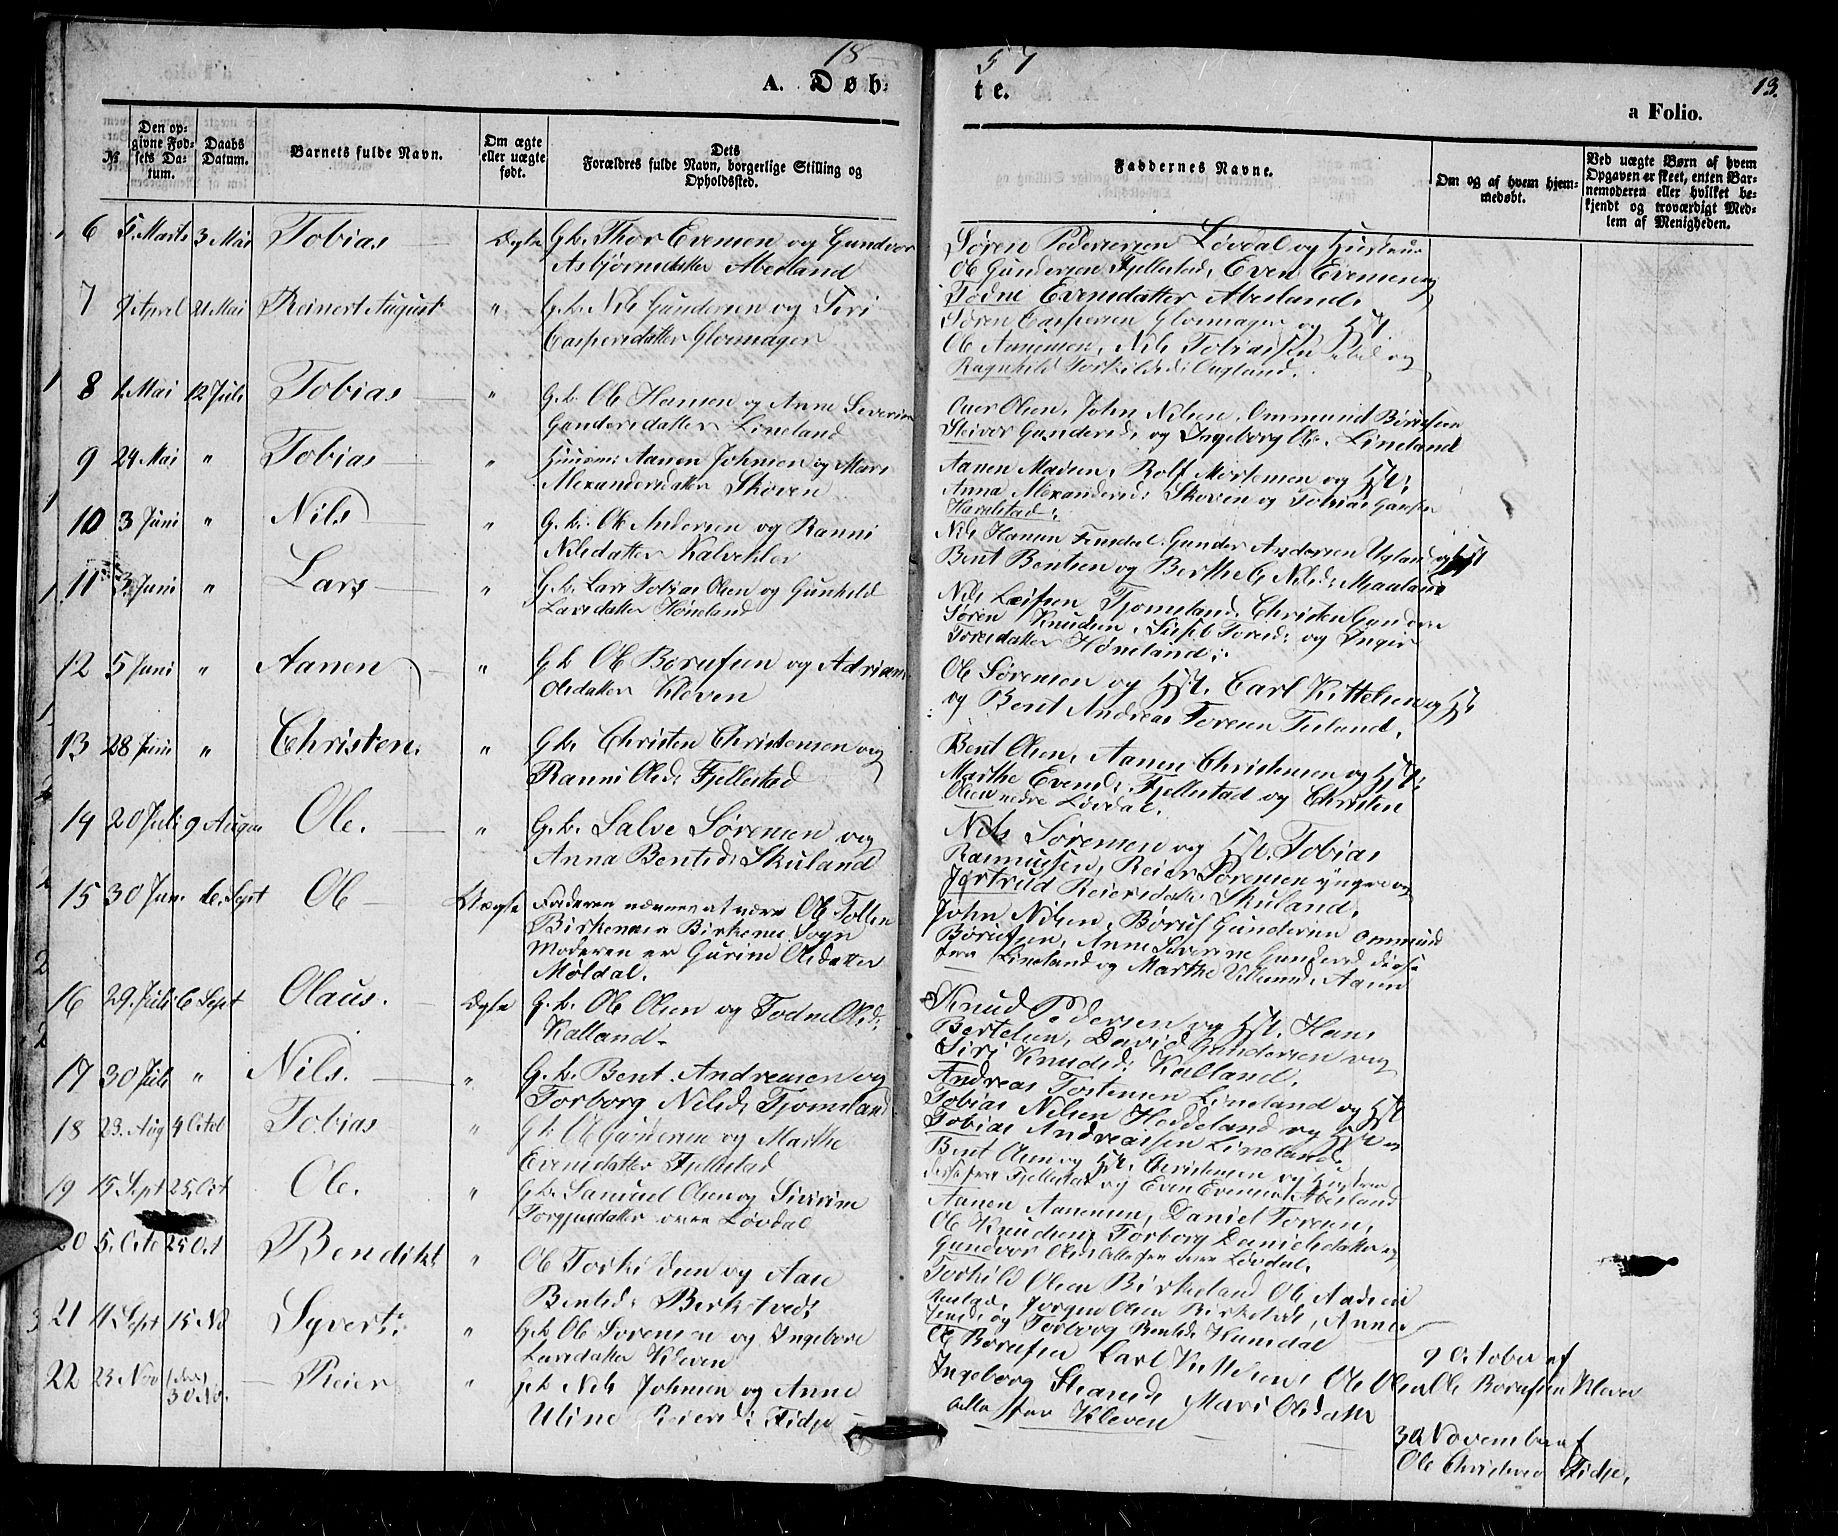 18
57
13.
A. Døb
te.
a Folio.
№
Den opgivne Fødsels Datum.
Daabs Datum.
Barnets fulde Navn.
Om ægte eller uægte født.
Dets Forældres fulde Navn, borgerlige Stilling og Opholdssted.
Faddernes Navne.
Om og af hvem hjemmedøbt.
Ved uægte Børn af hvem Opgaven er skeet, enten Barnemoderen eller hvilket bekjendt og troværdigt Medlem af Menigheden.
6 5 Marts 3 Mai Tobias Ægte G.b. Thor Evensen og Gundvor
Asbjørnsdatter Abesland
Søren Pedersen Løvdal og Hustrue
Ole Gundersen Fjellestad, Even Evensen og
Todne Evensdatter Abesland.
7 April 21 Mai Reinert August " G.b. Nils Gundersen og Siri
Caspersdatter Glomsager
Søren Caspersen Glomsager og Hst.
Ole Aanensen, Nils Tobiassen og
Ragnhild Torkildsd: Ougland.
8 1 Mai 12 Juli Tobias " G.b. Ole Hansen og Anne Severine
Gundersdatter Lineland
Ouer Olsen, John Nilsen, Ommund Børufsen
Steivor Gundersd. og Ingeborg Ols. Lineland
9 24 Mai " Tobias " Huusm: Aanen Johnsen og Mari
Alexandersdatter Skoven
Aanen Madsen, Rolf Mortensen og Hst.
Anna Alexandersd: Skoven og Tobias
10 3 Juni " Nils " G.b. Ole Andersen og Ranni
Nilsdatter Kalvehler
Nils Hansen Gunder Andersen Uglan og Hst
Bent Bentsen og Berthe G Nilsd: Maaland
11 3 Juni " Lars " G.b. Lars Tobias Olsen og Gunhild
Larsdatter Høneland
Nils Leifsen Tjomsland, Christen Gunders
Søren Knudsen, Torsd: og Inger
Torsdatter Høneland.
12 5 Juni " Aanen " G.b. Ole Børufsen og Adriane
Olsdatter Kleven
Ole Sørensen og Hst. Carl Kittelsen og Hst
og Bent Andreas Toresen
13 28 Juni " Christen. " G.b. Christen Christensen og
Ranni Olsd. Fjellestad
Bent Olsen, Aanen Christensen og Hst:
Marthe Evensd: Fjellestad og Christen
Olsen nedre Løvdal.
14 20 Juli 9 August Ole. " G.b. Salve Sørensen og
Anna Bentsd: Skuland
Nils Sørensen og Hst. Tobias
Rasmussen, Reier Sørensen yngre og
Jertrud Reiersdatter Skuland.
15 30 Juni 6. Sept Ole Uægte Faderen nævnes at være Ole Tollen
Birkenes Sogn
Moderen er Gurine Olsdatter
Moldal.
John Nilsen, Børuf Gundersen Ommund
Børufsen, Anne Severine Gundersd disse
fra Lineland og Marthe
16 29. Juli 6 Sept Olaus. Ægte G.b. Ole Olsen og Todne Olsd:
Kalland.
Knud Pedersen og Hst. Hans
Bertelsen, David Gundersen og
Siri Knudsd: Kalland.
17 30 Juli " Nils. " G.b. Bent Andreasen og
Torborg Nilsd: Tjomsland
Andreas Tostensen Lineland og Hst
Tobias Nilsen Heddeland og Hst
Tobias Andreassen Lineland.
18 23. Aug 4 Octob Tobias " G.b. Ole Gundersen og Marthe
Evensdatter Fjellestad
Bent Olsen og Hst. Christensen og Hustrue
disse fra Fjellestad og Even Evensen Abesland
19 15 Sept 25. Oct Ole. " G.b. Samuel Olsen og Sivirine
Torgjusdatter øvre Løvdal
Aanen Aanensen, Daniel Toresen,
Ole Knudsen, Torborg Danielsdatter og
Gundvor Olsd. alle fra øvre Løvdal.
20 5. Octo 25 Oct Bendikt " Ole Torkildsen og Aase
Bentsd: Birkstvedt
Torkild Olsen Birkeland Ole Andsen
Jørgen Olsen Birkstvedt, Anne
og Torborg Bentsd
21 11 Sept 15 No Syvert. " G.b. Ole Sørensen og Ingeborg
Larsdatter Kleven
Ole Børufsen Carl Kittelsen, Ole Olsen
Ingeborg Mari Olsdatter
alle fra Kleven
9 October af
Ole Børufsen Kleven
22 23 Nov 30 No. Reier " G.b. Nils Johnsen og Anne
Uline Reiersd: Fidje
30 November af
Ole Christensen Fidje.